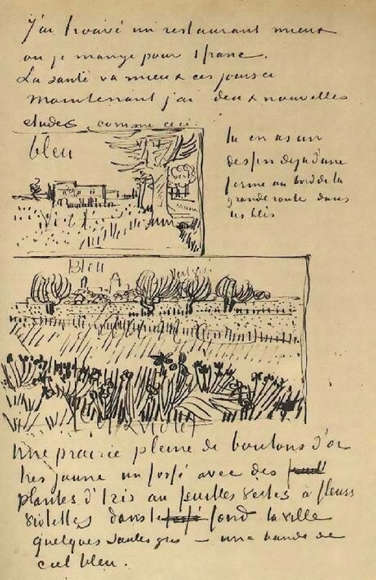 J'ai trouvé un restaurant mieux
ou je mange pour 1 franc.
La santé va mieux ces jours ci
Maintenant j'ai deux nouvelles
etudes comme ceci
bleu
tu en as un
dessin deja d'une
ferme au bord de la
grande route dans
les blés
Bleu
violet
Une prairie pleine de boutons d'or
tres jaune un fossé avec des
plantes d'Iris au feuilles vertes à fleurs
violettes dans le fond la ville
quelques saules gris – une bande de
ciel bleu.